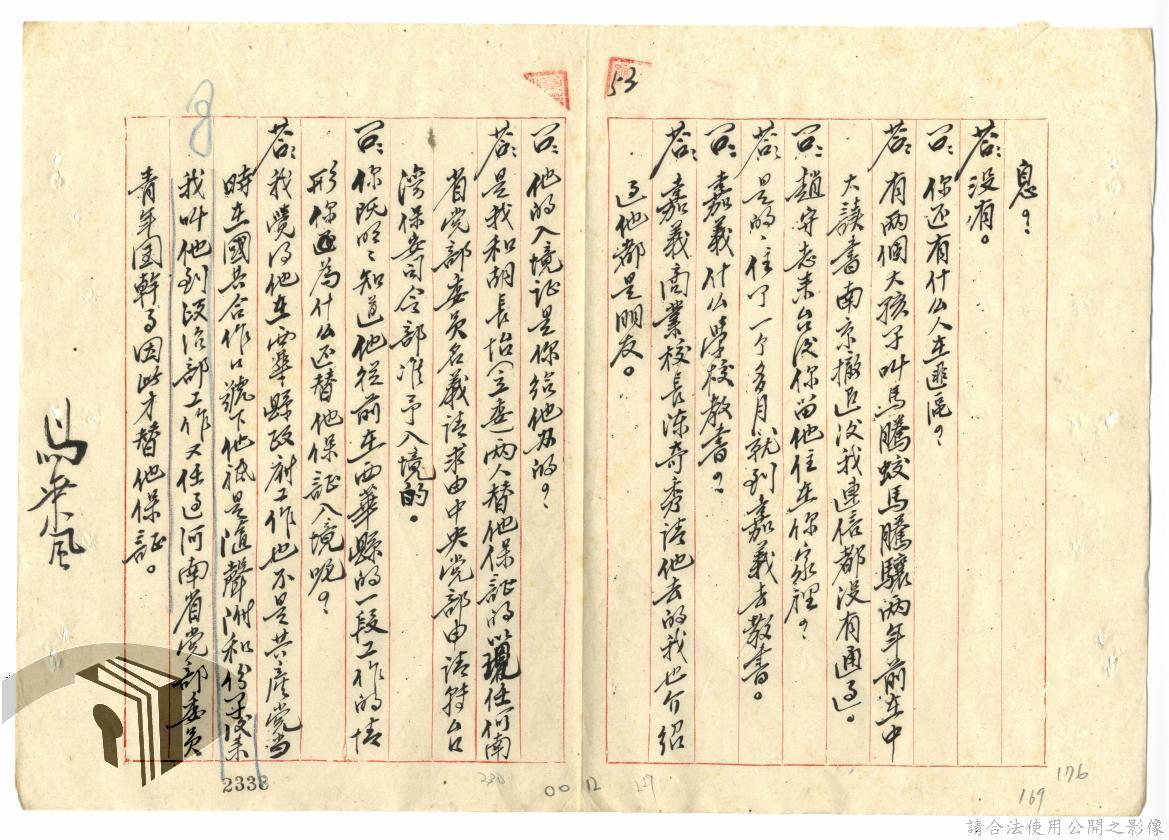 53
息?
答:没有。
问:你还有什么人在匪区?
答:有两個大孩子叫馬騰蛟馬騰驤两年前在中
大讀書南京撤退後我連信都没有通过。
问:趙守志来台後你留他住在你家裡?
答:是的、住了一个多月就到嘉義去教書。
问:嘉義什么學校教書?
答:嘉義商業校長陈奇秀請他去的我也介紹
过他都是朋友。
问:他的入境証是你给他办的?
答:是我和胡長怡(立委)两人替他保証的以現任河南
省党部委員名義請求由中央党部申請转台
湾保安司令部准予入境的。
问:你既明明知道他從前在西華縣的一段工作的情
形你还為什么还替他保証入境呢?
答:我覺得他在西華縣政府工作也不是共產党当
時在國共合作口號下他祗是隨聲附和份子後来
我叫他到政治部工作又任过河南省党部委員
青年团幹事因此才替他保証。
馬乘風
2338
230
00 12
129
176
169
請合法使用公開之影像